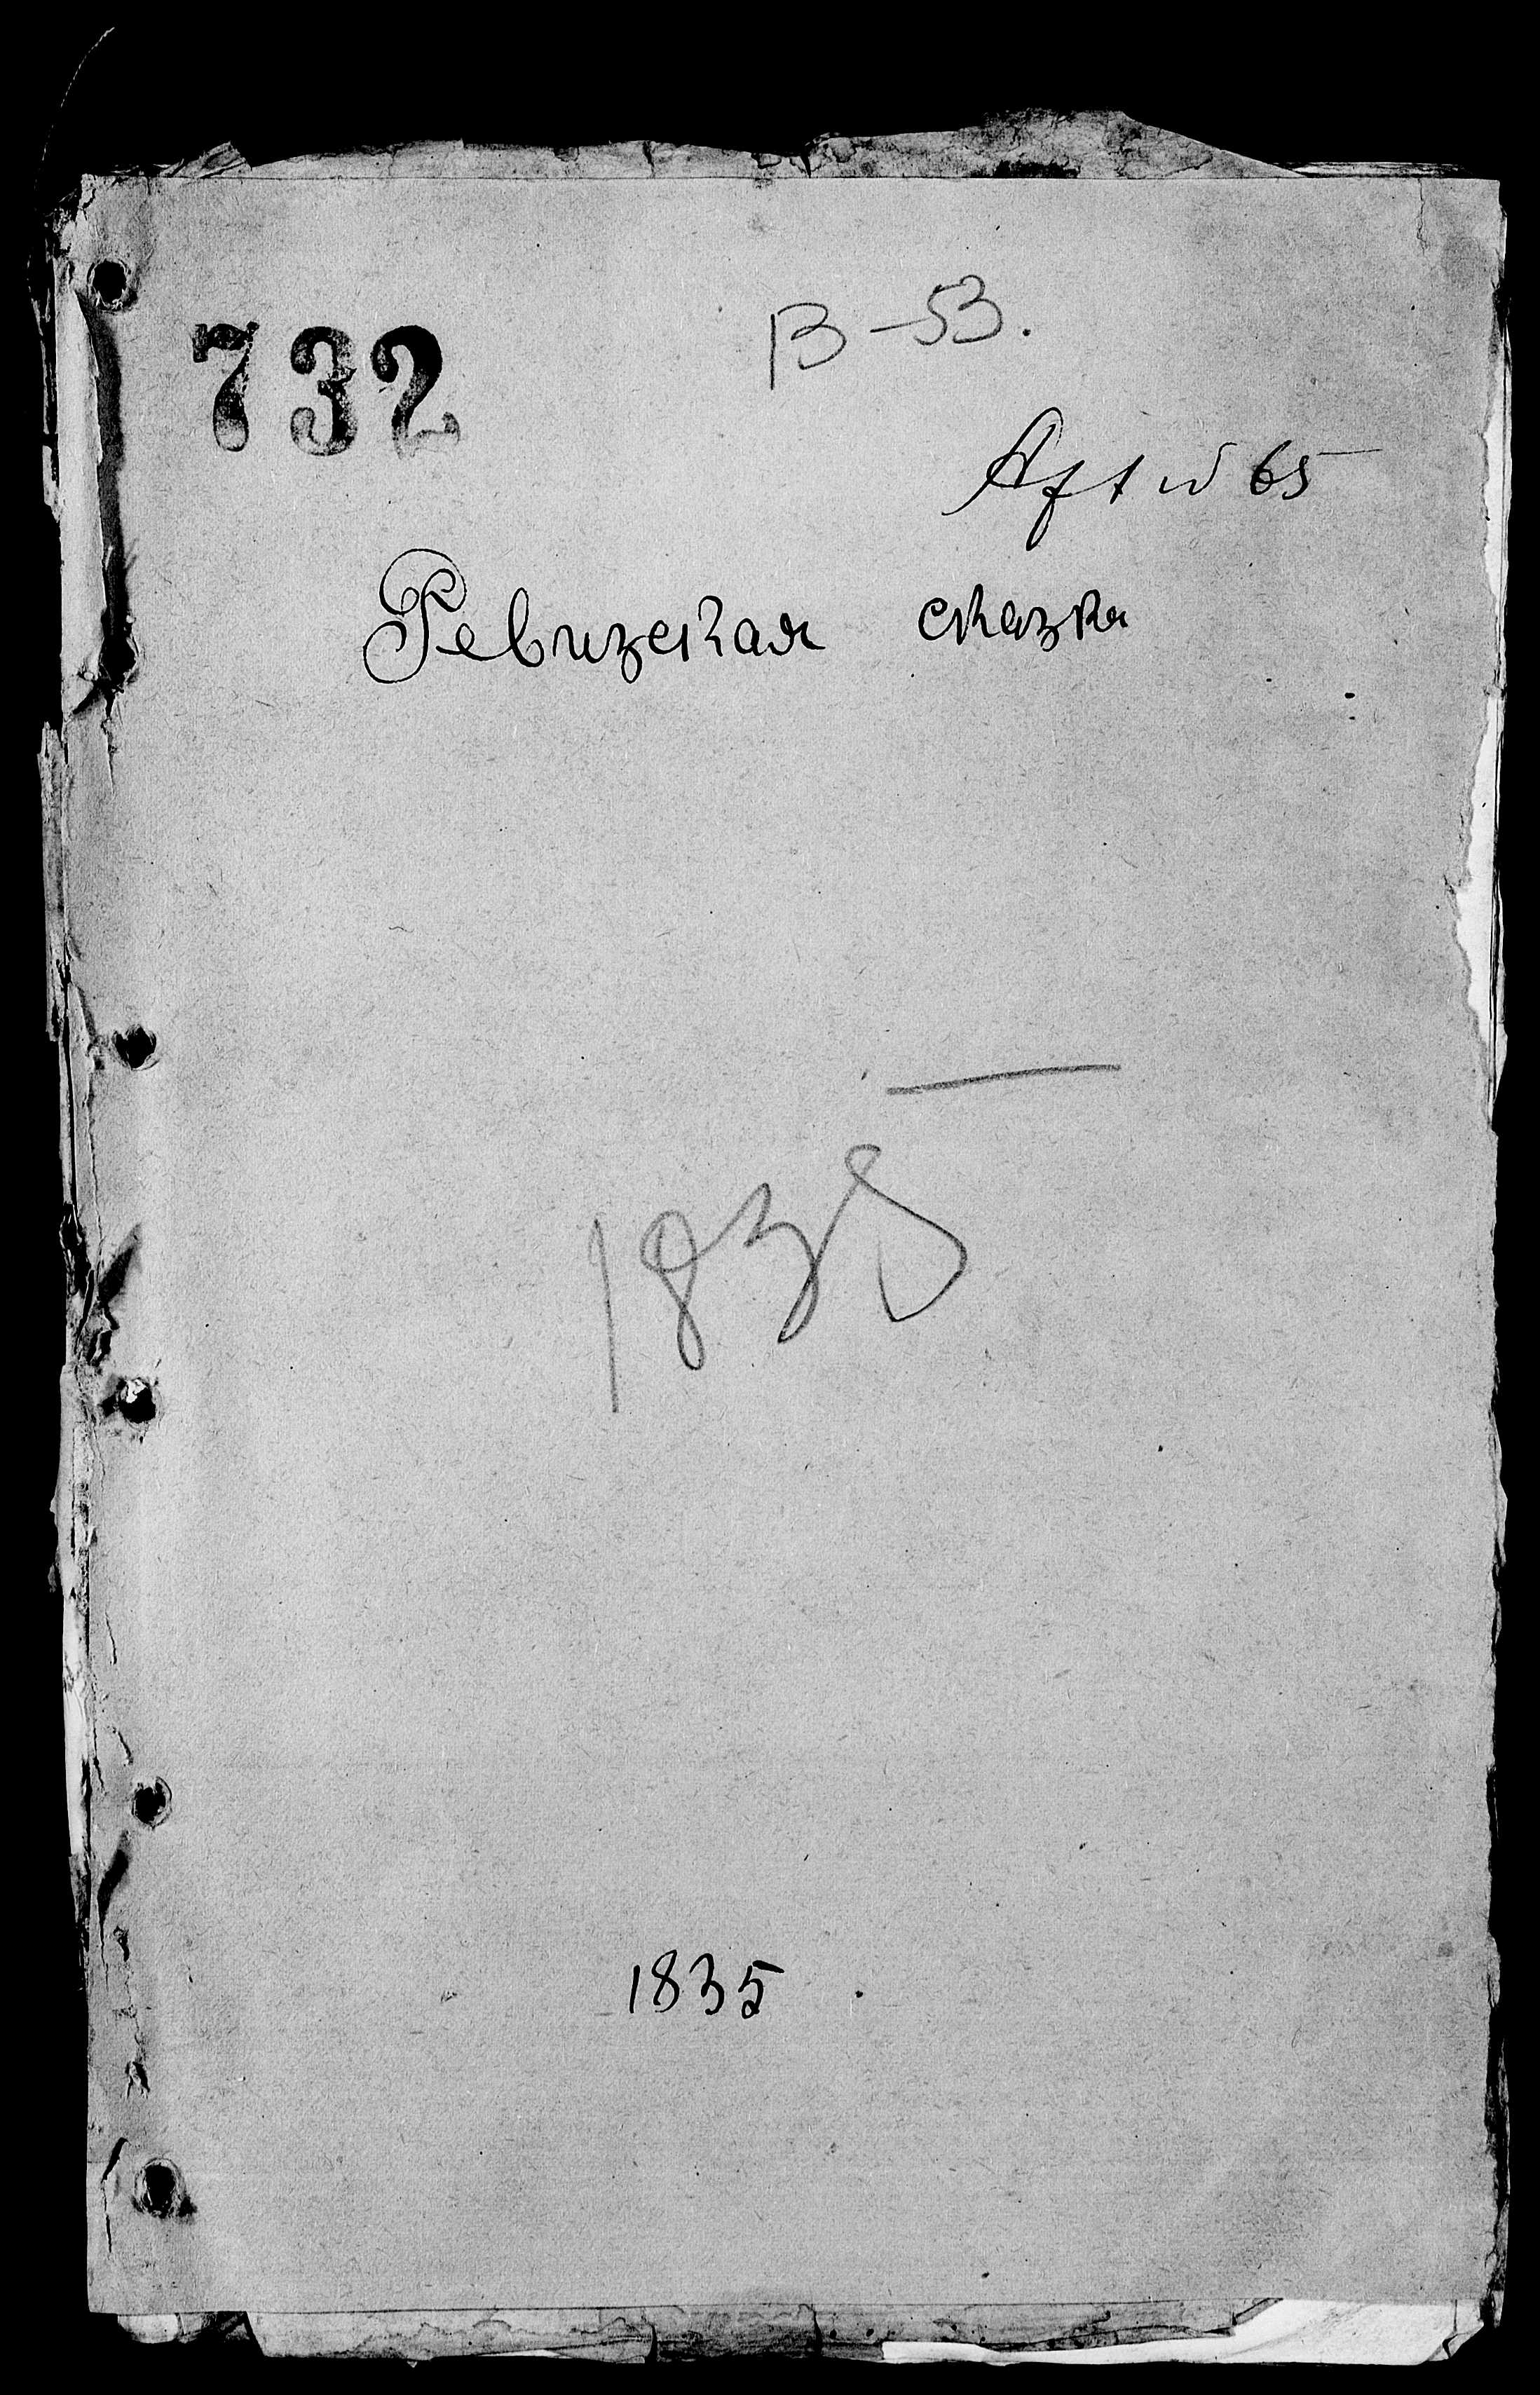 732
В-53.
65
Ревизская сказка
1835
1835